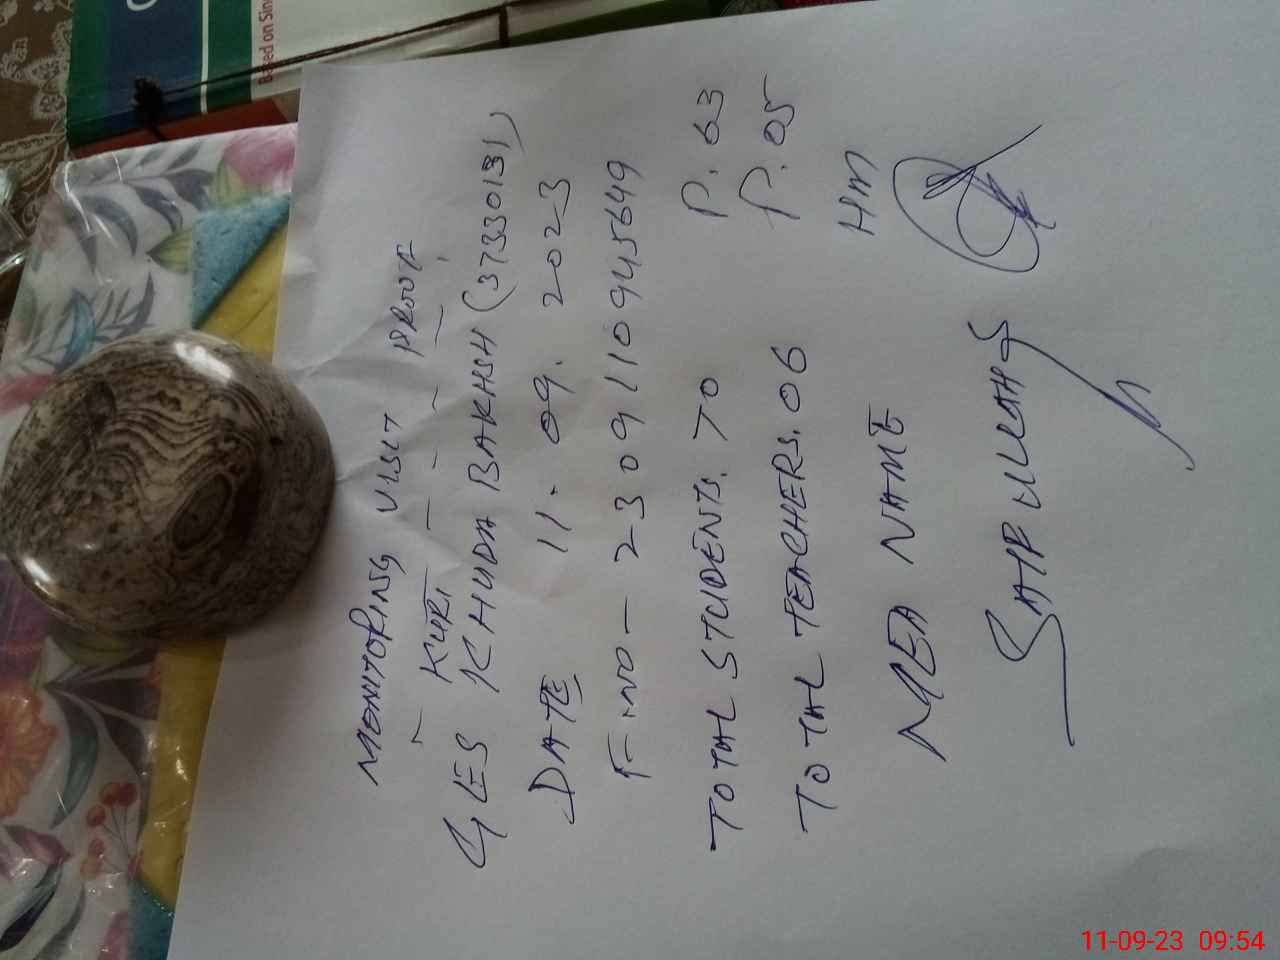 MONITORING VISIT PROOF
KURI
GES KHUDA BAKHSH (37330131)
DATE 11.09.2023
F-NO - 23091109445649
TOTAL STUDENTS. 70 P. 63
TOTAL TEACHERS. 06 P. 05
MEA NAME HM
SAIF ULLAH
Based on Sin
11-09-23 09:54